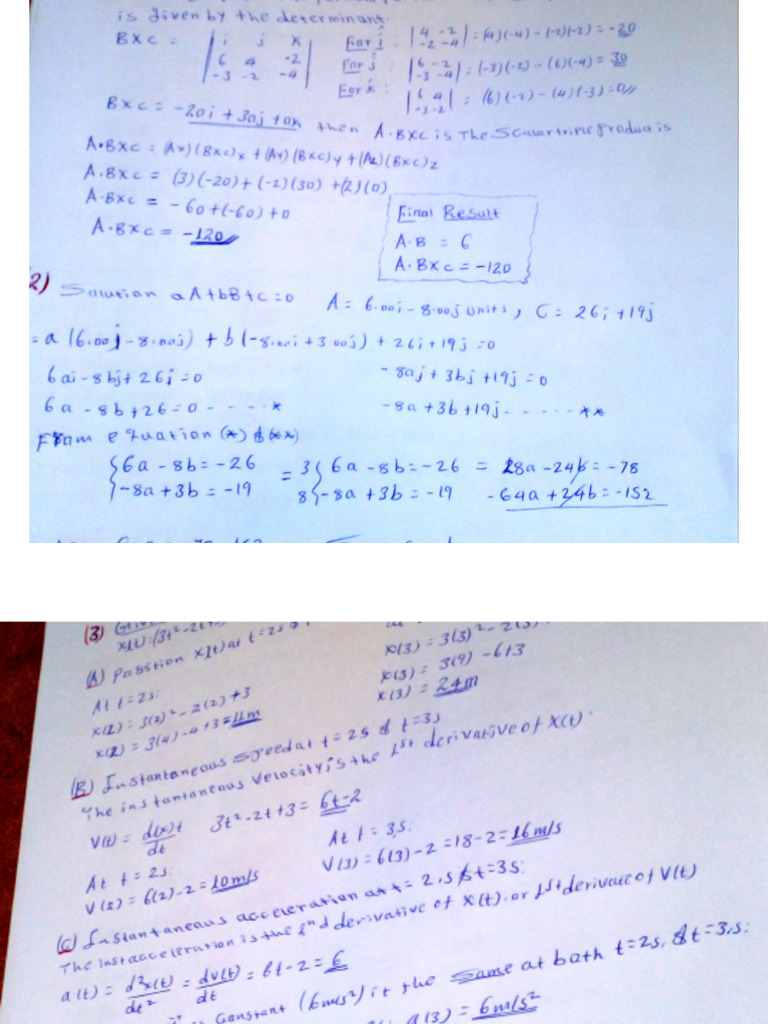 is given by the determinant.
B×C = | i j k | For i: |4 -2| = (4)(-4) - (-2)(-2) = -20
| 6 4 -2 | |-2 -4|
| -3 -2 -4 | For j |6 -2| = (-3)(-2) - (6)(-4) = 30
|-3 -4|
For k |6 4| = (6)(-2) - (4)(-3) = 0//
|-3 -2|
B×C = -20i + 30j + 0k then A·B×C is The Scalar triple Product is
A·B×C = (Ax)(B×C)x + (Ay)(B×C)y + (Az)(B×C)z
A·B×C = (3)(-20) + (-2)(30) + (2)(0)
A·B×C = -60 + (-60) + 0
A·B×C = -120//
Final Result
A·B = 6
A·B×C = -120
2) Solution aA+bB+C=0 A = 6.00i - 8.00j units, C = 26i + 19j
= a(6.00j - 8.00j) + b(-8.00i + 3.00j) + 26i + 19j = 0
6ai - 8bj + 26i = 0 - 8aj + 3bj + 19j = 0
6a - 8b + 26 = 0 - - - - * -8a + 3b + 19j - - - - - **
From equation (*) & (**)
{6a - 8b = -26 = 3{6a - 8b = -26 = 18a - 24b = -78
{-8a + 3b = -19 8{-8a + 3b = -19 -64a + 24b = -152
(3)
x(t) = (3t² - 2t +
(A) Passtion x(t) at t = 2s
At t = 2s: x(3) = 3(3)² - 2(3)
x(2) = 3(2)² - 2(2) + 3 x(3) = 3(9) - 6 + 3
x(2) = 3(4) - 4 + 3 = 11m x(3) = 24m
(B) Instantaneous speed at t = 2s & t = 3s
The instantaneous velocity is the 1st derivative of x(t).
V(t) = d(x)t/dt 3t² - 2t + 3 = 6t - 2
At t = 2s: At t = 3s:
V(2) = 6(2) - 2 = 10m/s V(3) = 6(3) - 2 = 18 - 2 = 16m/s
(C) Instantaneous acceleration at t = 2,s & t = 3s:
The inst acceleration is the 2nd derivative of x(t). or 1st derivate of V(t)
a(t) = d²x(t)/dt² = dv(t)/dt = 6t - 2 = 6
Constant (6m/s²) it the same at both t = 2s, & t = 3,s:
a(3) = 6m/s²